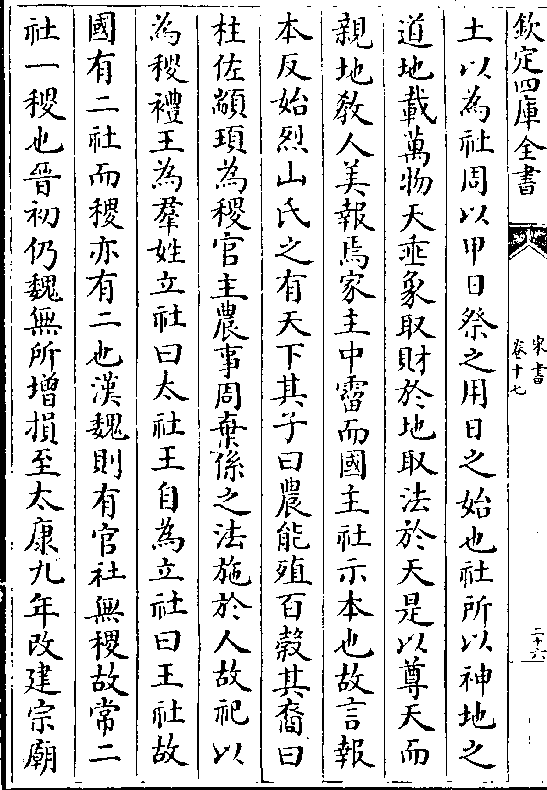 欽定四庫全書
宋書
卷十七
二十六
土以為社周以甲日祭之用日之始也社所以神地之
道地載萬物天垂象取財於地取法於天是以尊天而
親地教人美報焉家主中霤而國主社示本也故言報
本反始烈山氏之有天下其子曰農能殖百穀其裔曰
柱佐顓頊為稷官主農事周棄係之法施於人故祀以
為稷禮王為羣姓立社曰太社王自為立社曰王社故
國有二社而稷亦有二也漢魏則有官社無稷故常二
社一稷也晉初仍魏無所增損至太康九年改建宗廟